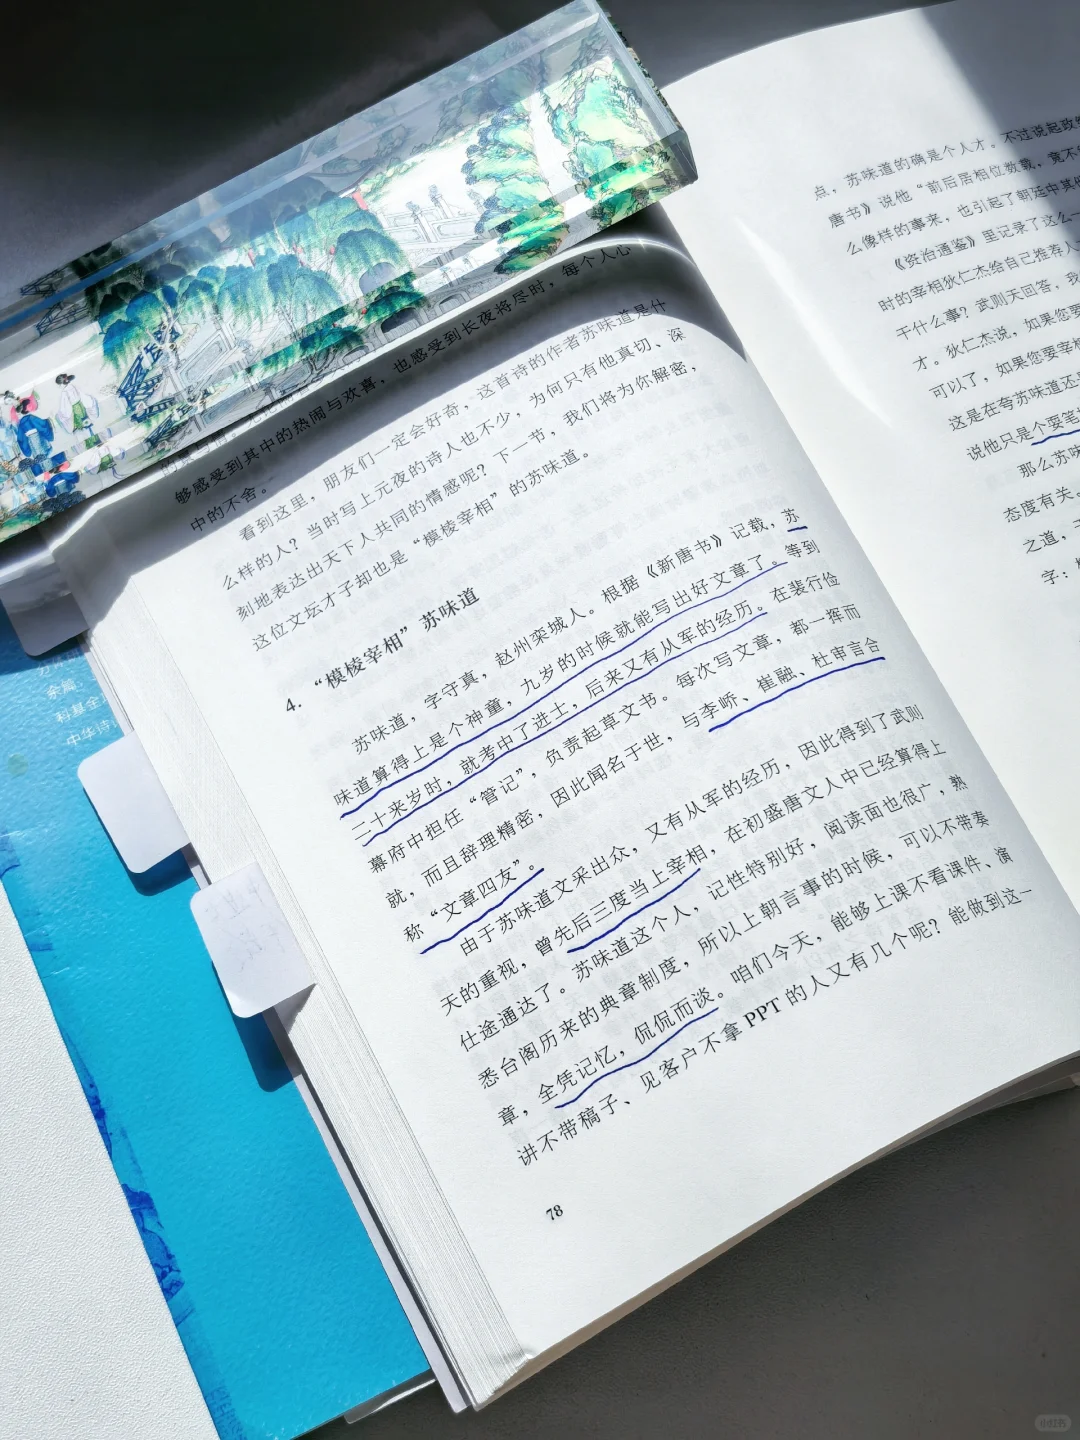 够感受到其中的热闹与欢喜，也感受到长夜将尽时，每个人心
中的不舍。
看到这里，朋友们一定会好奇，这首诗的作者苏味道是什
么样的人？当时写上元夜的诗人也不少，为何只有他真切、深
刻地表达出天下人共同的情感呢？下一节，我们将为你解密，
这位文坛才子却也是“模棱宰相”的苏味道。
4.“模棱宰相”苏味道
苏味道，字守真，赵州栾城人。根据《新唐书》记载，苏
味道算得上是个神童，九岁的时候就能写出好文章了。等到
二十来岁时，就考中了进士，后来又有从军的经历。在裴行俭
幕府中担任“管记”，负责起草文书。每次写文章，都一挥而
就，而且辞理精密，因此闻名于世，与李峤、崔融、杜审言合
称“文章四友”。
由于苏味道文采出众，又有从军的经历，因此得到了武则
天的重视，曾先后三度当上宰相，在初盛唐文人中已经算得上
仕途通达了。苏味道这个人，记性特别好，阅读面也很广，熟
悉台阁历来的典章制度，所以上朝言事的时候，可以不带奏
章，全凭记忆，侃侃而谈。咱们今天，能够上课不看课件、演
讲不带稿子、见客户不拿PPT的人又有几个呢？能做到这一
78
点，苏味道的确是个人才。不过说起政
唐书》说他“前后居相位数载，竟不
么像样的事来，也引起了朝廷中其
《资治通鉴》里记录了这么一
时的宰相狄仁杰给自己推荐人
干什么事？武则天回答，我
才。狄仁杰说，如果您要
可以了，如果您要宰相
这是在夸苏味道还是
说他只是个耍笔
那么苏味
态度有关。
之道，
字：
杂篇、
科基金
中华诗
小红书